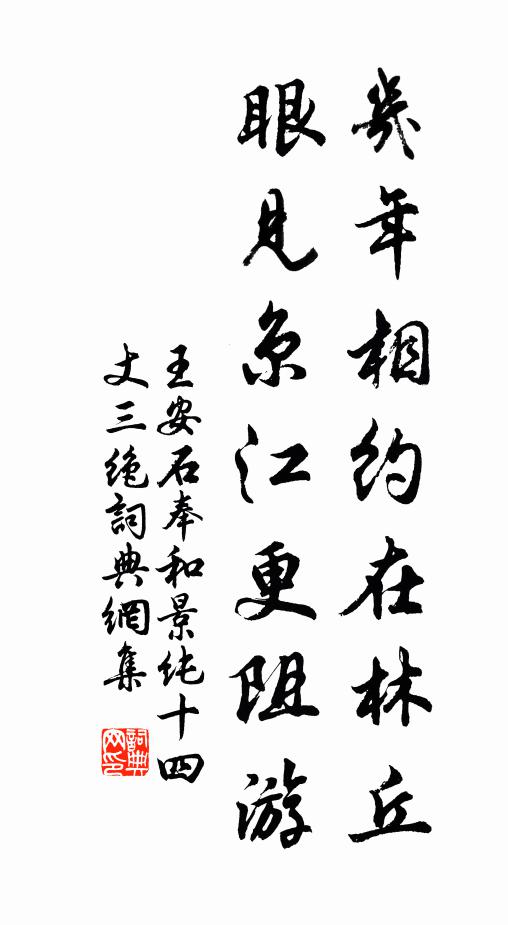 幾年相約在林丘
眼見京江更阻游
王安石奉和景纯十四
丈三绝詞典網集
詞典網印